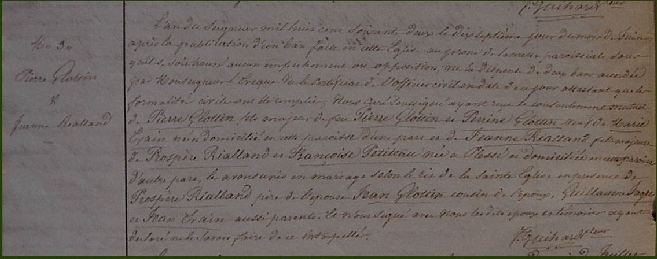 No 30
Pierre Glotin
&
Jeanne Rialland
L'an du Seigneur mil huit cent soixante deux le dix septième jour du mois de
après la publication d'un ban faite en cette Eglise au prône de la messe paroissiale sans
qu'il se soit trouvé aucun empêchement ou opposition, vu la dispense de deux bans accordée
par Monseigneur l'Evêque vu le certificat de l'officier civil en date de ce jour attestant que les
formalités civiles ont été remplies Nous Curé soussigné ayant reçu le consentement mutuel
de Pierre Glotin fils majeur de feu Pierre Glotin et Perrine veuf de Marie
Train né domicilié en cette paroisse d'une part et de Jeanne Rialland fille majeure
de Prospère Rialland et Françoise Petiteau née à Plessé et domiciliée en cette paroisse
d'autre part, les avons unis en mariage selon les lois de la Sainte Eglise en présence de
Prospère Rialland père de l'épouse Jean Glotin cousin de l'époux, Guillaume
et Jean Train aussi parents. Le nous signé avec nous les dits époux et témoins ayant
déclaré ne le savoir faire de ce interpellés.